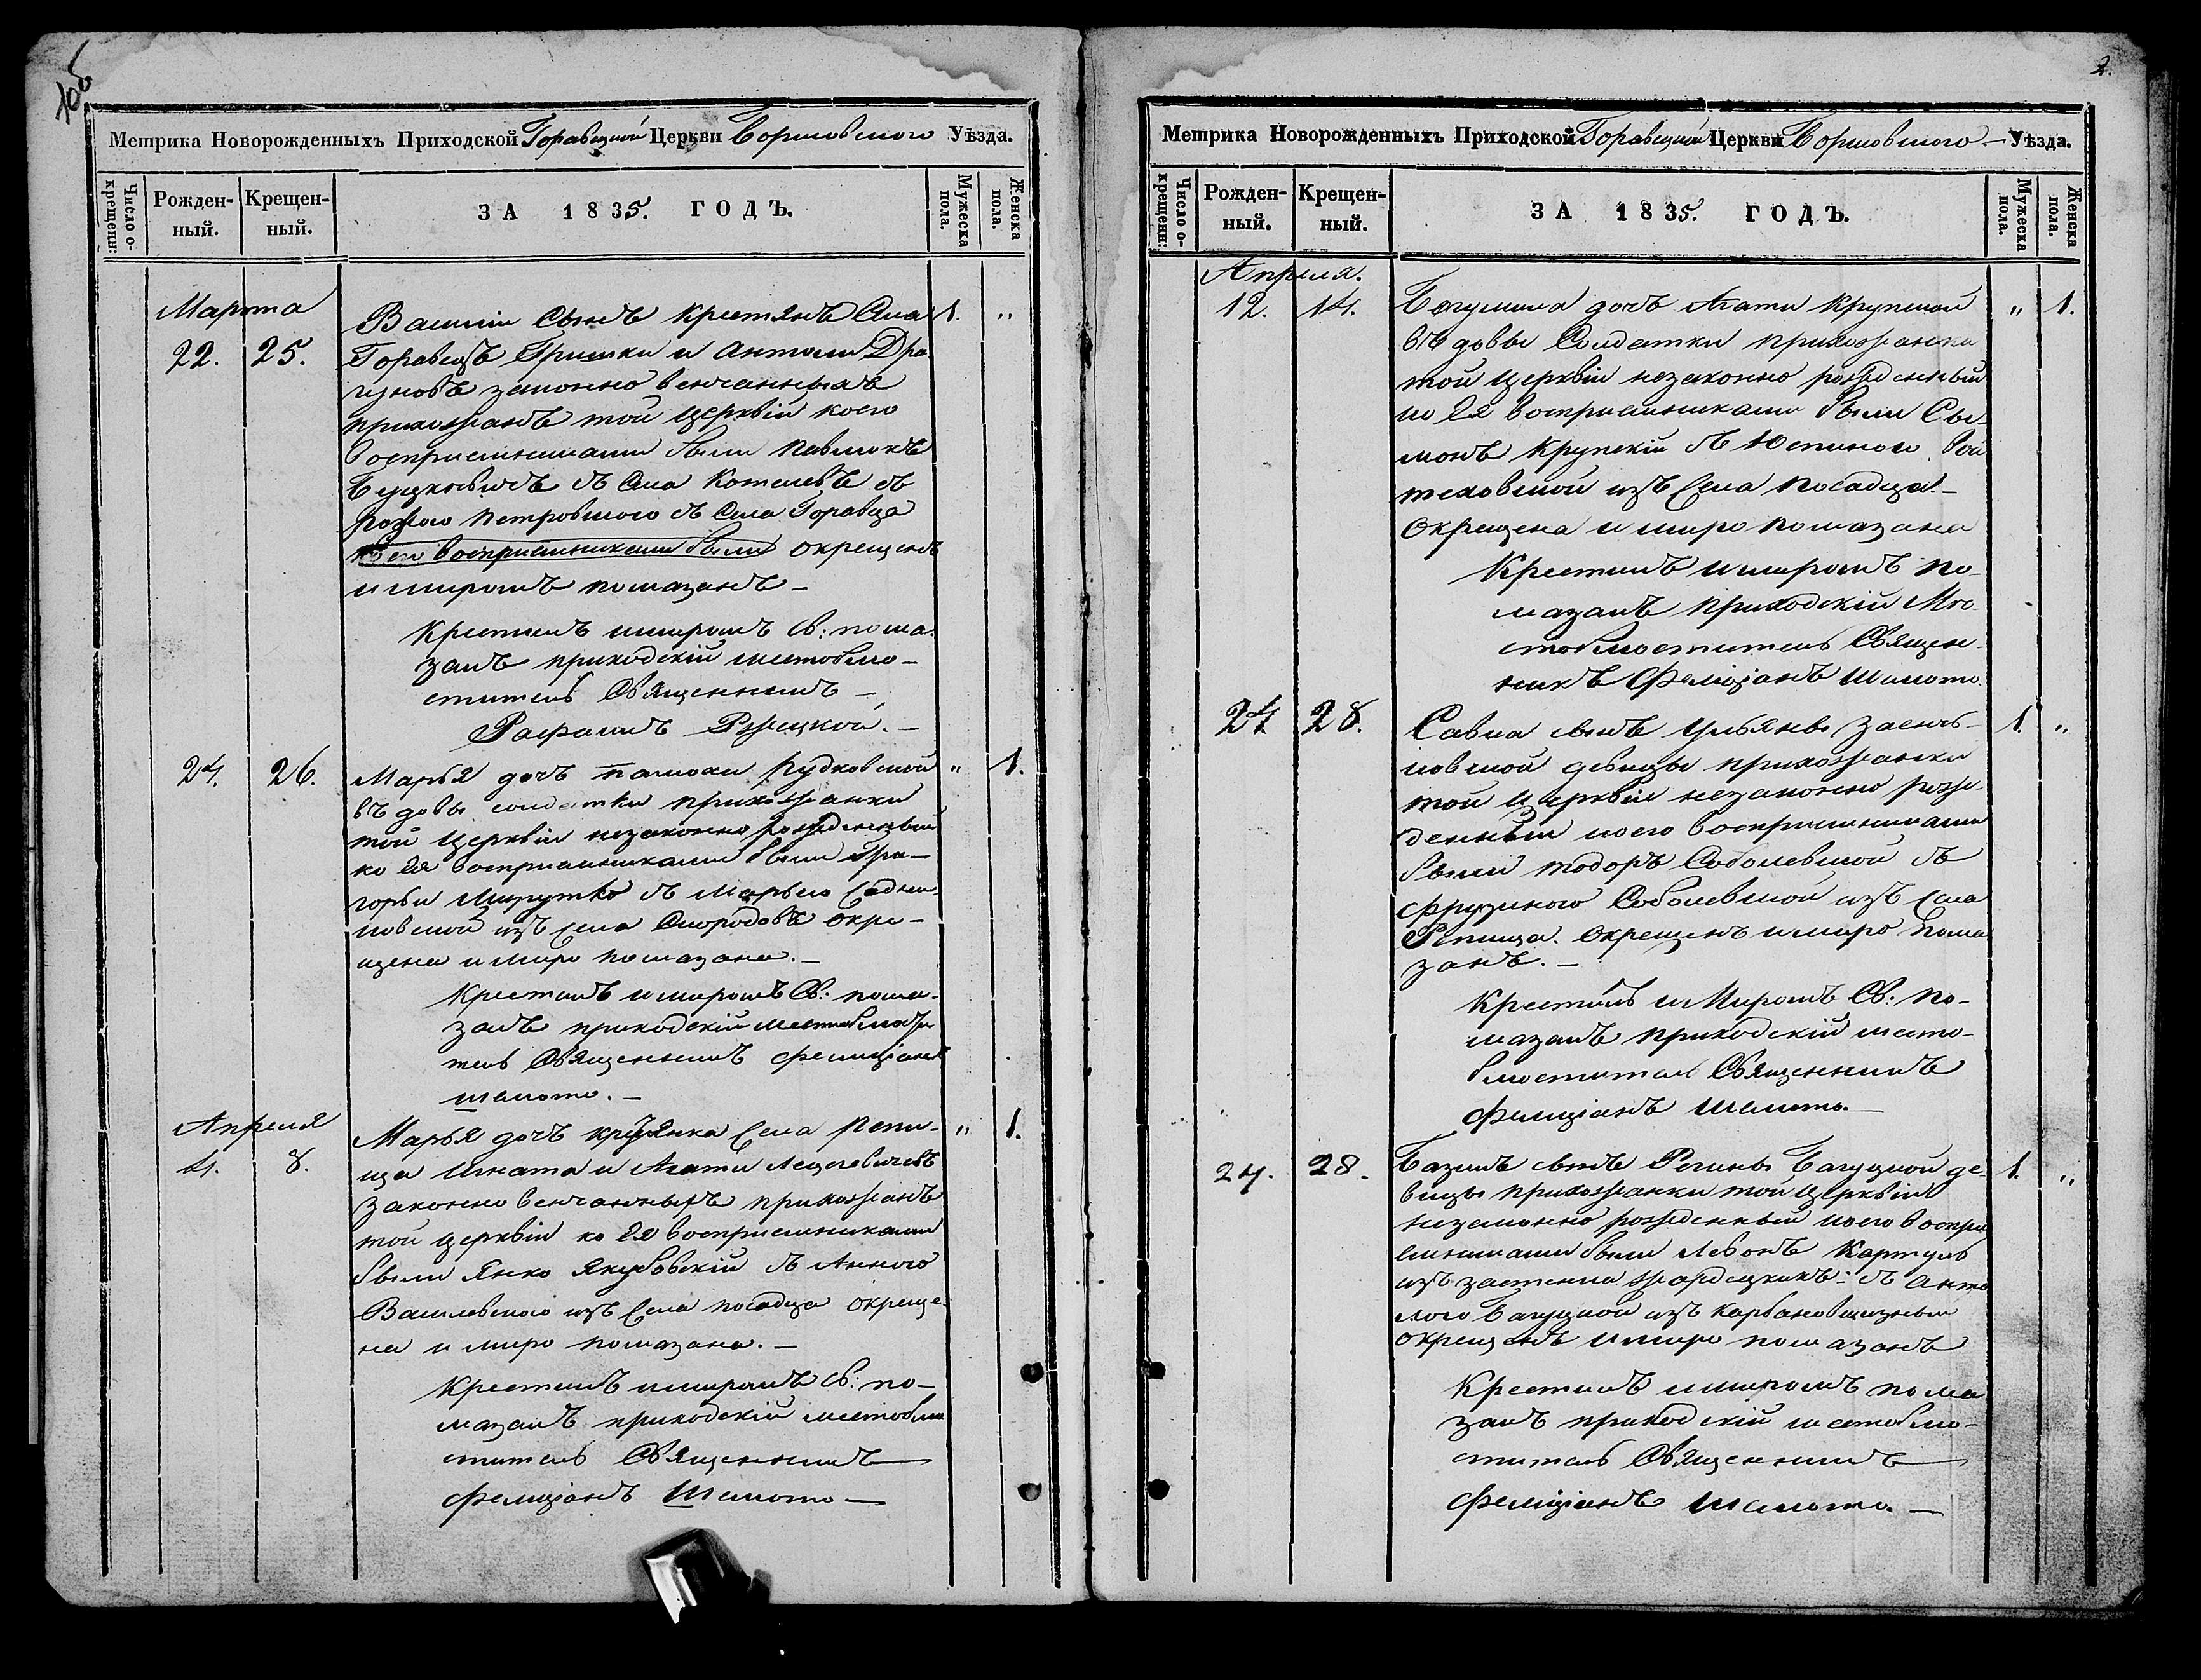 Метрика Новорожденныхъ Приходской Горавецкой Церкви Борисовского Уѣзда.
Число о-
крещенн:
Рожден-
ный.
Крещен-
ный.
ЗА 1835. ГОДЪ.
Мужеска
пола.
Женска
пола.
Марта
22. 25. 1. „
Василiи Сынъ крестянъ Села
Горавецъ Гришки и Антоли Дра
гуновъ законно венчанныхъ
прихожанъ той церквiй коего
воспрiемниками были Павлюкъ
съ Села Котелевъ съ
Петровского съ Села Горавца
воспрiемниками были окрещенъ
и миромъ помазанъ —
Крестилъ и миромъ Св: пома-
залъ приходскiй местоблю-
ститель Священникъ —
Рафаилъ Ржецкой. —
24. 26. „ 1.
Марья дочъ Рудковской
въдовы солдатки прихожанки
той церквiи незаконно рожденный
ко ея воспрiемниками были Гри-
горьи Мирутко съ Марьею
ковской изъ села Смородовъ окре-
щена и миро помазана. —
Крестилъ и миромъ Св: пома-
залъ приходскiй местоблюсти
тель Священникъ Фелицiанъ
Шелюто. —
Апреля
4. 8. „ 1.
Марья дочъ Села Репи-
ща Игната и Агати Лецкевичевъ
законно венчанныхъ прихожанъ
той церквiи ко ея воспрiемниками
были Янко Якубовскiй съ Анною
Василевского изъ Села Посадца окреще-
на и миро помазана. —
Крестилъ и миромъ Св: по-
мазалъ приходскiй местоблю
ститель Священникъ
Фелицiанъ Шелюто —
2.
Метрика Новорожденныхъ Приходской Горавецкой Церкви Борисовского — Уѣзда.
Число о-
крещенн:
Рожден-
ный.
Крещен-
ный.
ЗА 1835. ГОДЪ.
Мужеска
пола.
Женска
пола.
Апреля.
12. 14. „ 1.
Богумила дочъ Агати Крупской
въдовы Солдатки прихожанки
той церквiи незаконно рожденный
ко ея воспрiемниками были Сы-
монъ Крупскiй съ Юстиною Вой
теховской изъ Села Посадца. —
Окрещена и миро помазана
Крестилъ и миромъ по-
мазалъ приходскiй Мѣ-
стоблюститель Священ-
никъ Фелицiанъ Шелюто.
24. 28. 1. „
Савка сынъ Ульяны Заенч-
ковской девицы прихожанки
той Церквiи незаконно рожде-
денный коего воспрiемниками
были Тодоръ Соболевской съ
Фрузиною Соболевской изъ Села
Репища. Окрещенъ и миро пома
занъ. —
Крестилъ и Миромъ Св: по-
мазалъ приходскiй место-
блюститель Священникъ
Фелицiанъ Шелюто. —
24. 28. 1. „
Базиль сынъ Регины Багуцкой де-
вицы прихожанки той Церквiи
незаконно рожденный коего воспрi
емниками были Левонъ Картуль
изъ застенка съ Анто
лею Багуцкой изъ
окрещенъ и миро помазанъ
Крестилъ и миромъ пома
залъ приходскiй местоблю-
ститель Священникъ
Фелицiанъ Шелюто. —